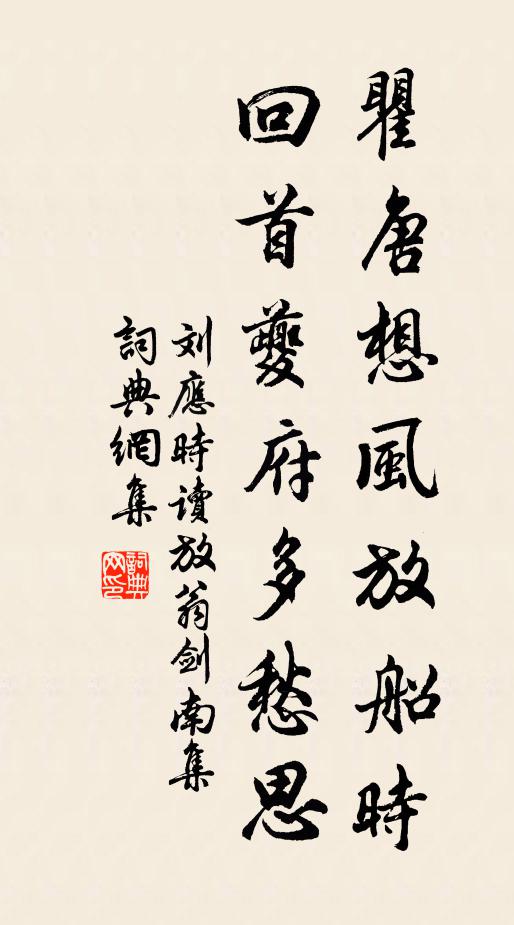 瞿唐想風放船時
回首夔府多愁思
刘應時讀放翁劍南集
詞典網集
詞典网印